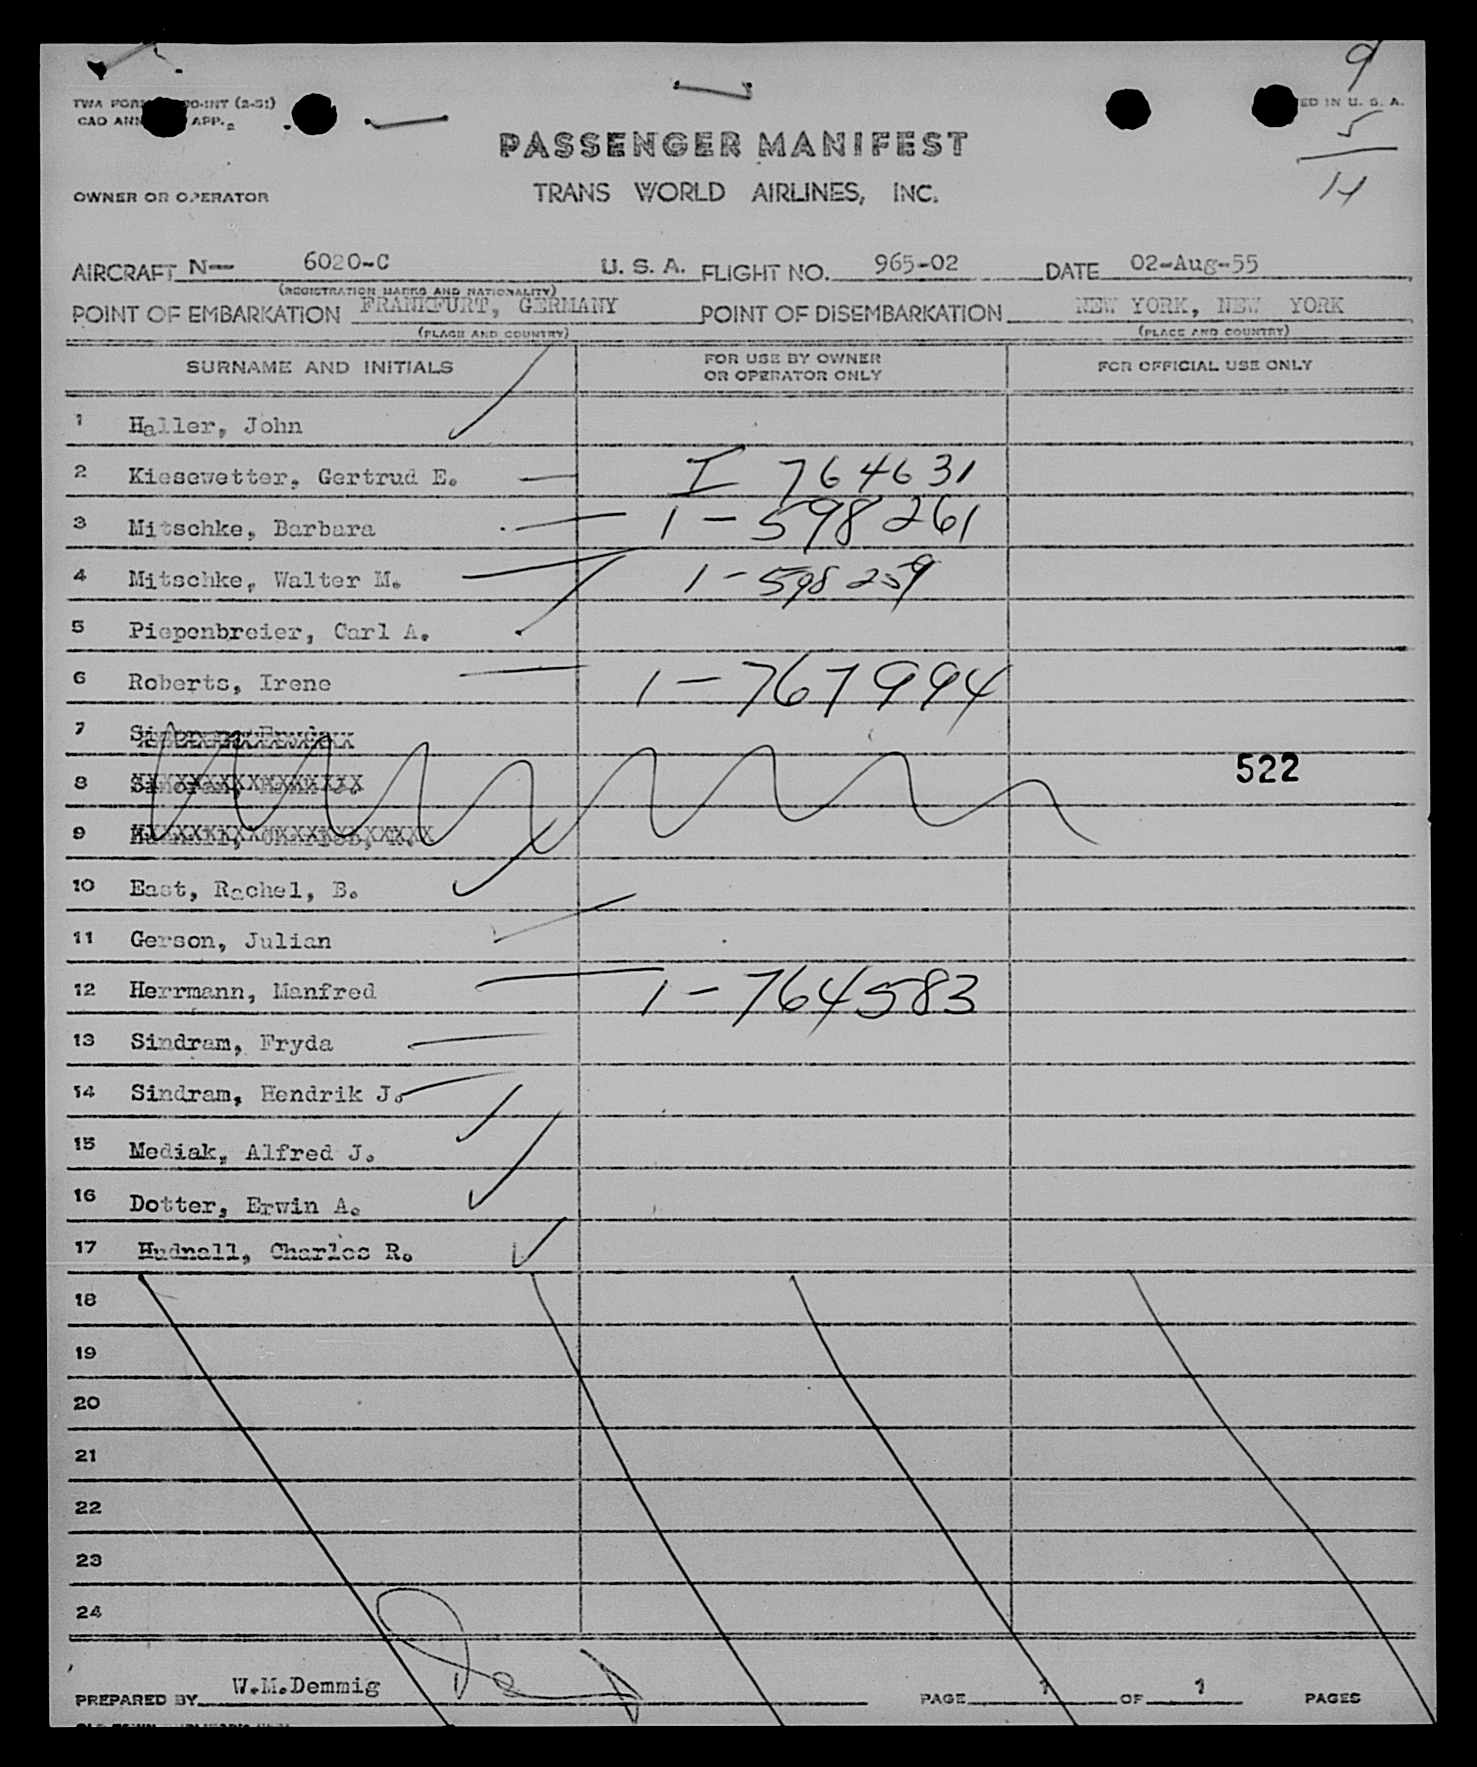 9
TWA FORM
(2-51)
CAO ANN
APP.
ED IN U. S. A.
5
14
PASSENGER MANIFEST
TRANS WORLD AIRLINES, INC.
OWNER OR OPERATOR
AIRCRAFT N— 6020-C U. S. A. FLIGHT NO. 965-02 DATE 02-Aug-55
(REGISTRATION MARKS AND NATIONALITY)
POINT OF EMBARKATION FRANKFURT, GERMANY POINT OF DISEMBARKATION NEW YORK, NEW YORK
(PLACE AND COUNTRY) (PLACE AND COUNTRY)
SURNAME AND INITIALS FOR USE BY OWNER OR OPERATOR ONLY FOR OFFICIAL USE ONLY
1 Haller, John
2 Kiesewetter, Gertrud E. I 764631
3 Mitschke, Barbara 1-598261
4 Mitschke, Walter M. 1-598259
5 Piepenbreier, Carl A.
6 Roberts, Irene 1-767994
7
8 522
9
10 East, Rachel, B.
11 Gerson, Julian
12 Herrmann, Manfred 1-764583
13 Sindram, Fryda
14 Sindram, Hendrik J.
15 Mediak, Alfred J.
16 Dotter, Erwin A.
17 Hudnall, Charles R.
18
19
20
21
22
23
24
PREPARED BY W.M.Demmig PAGE 1 OF 1 PAGES